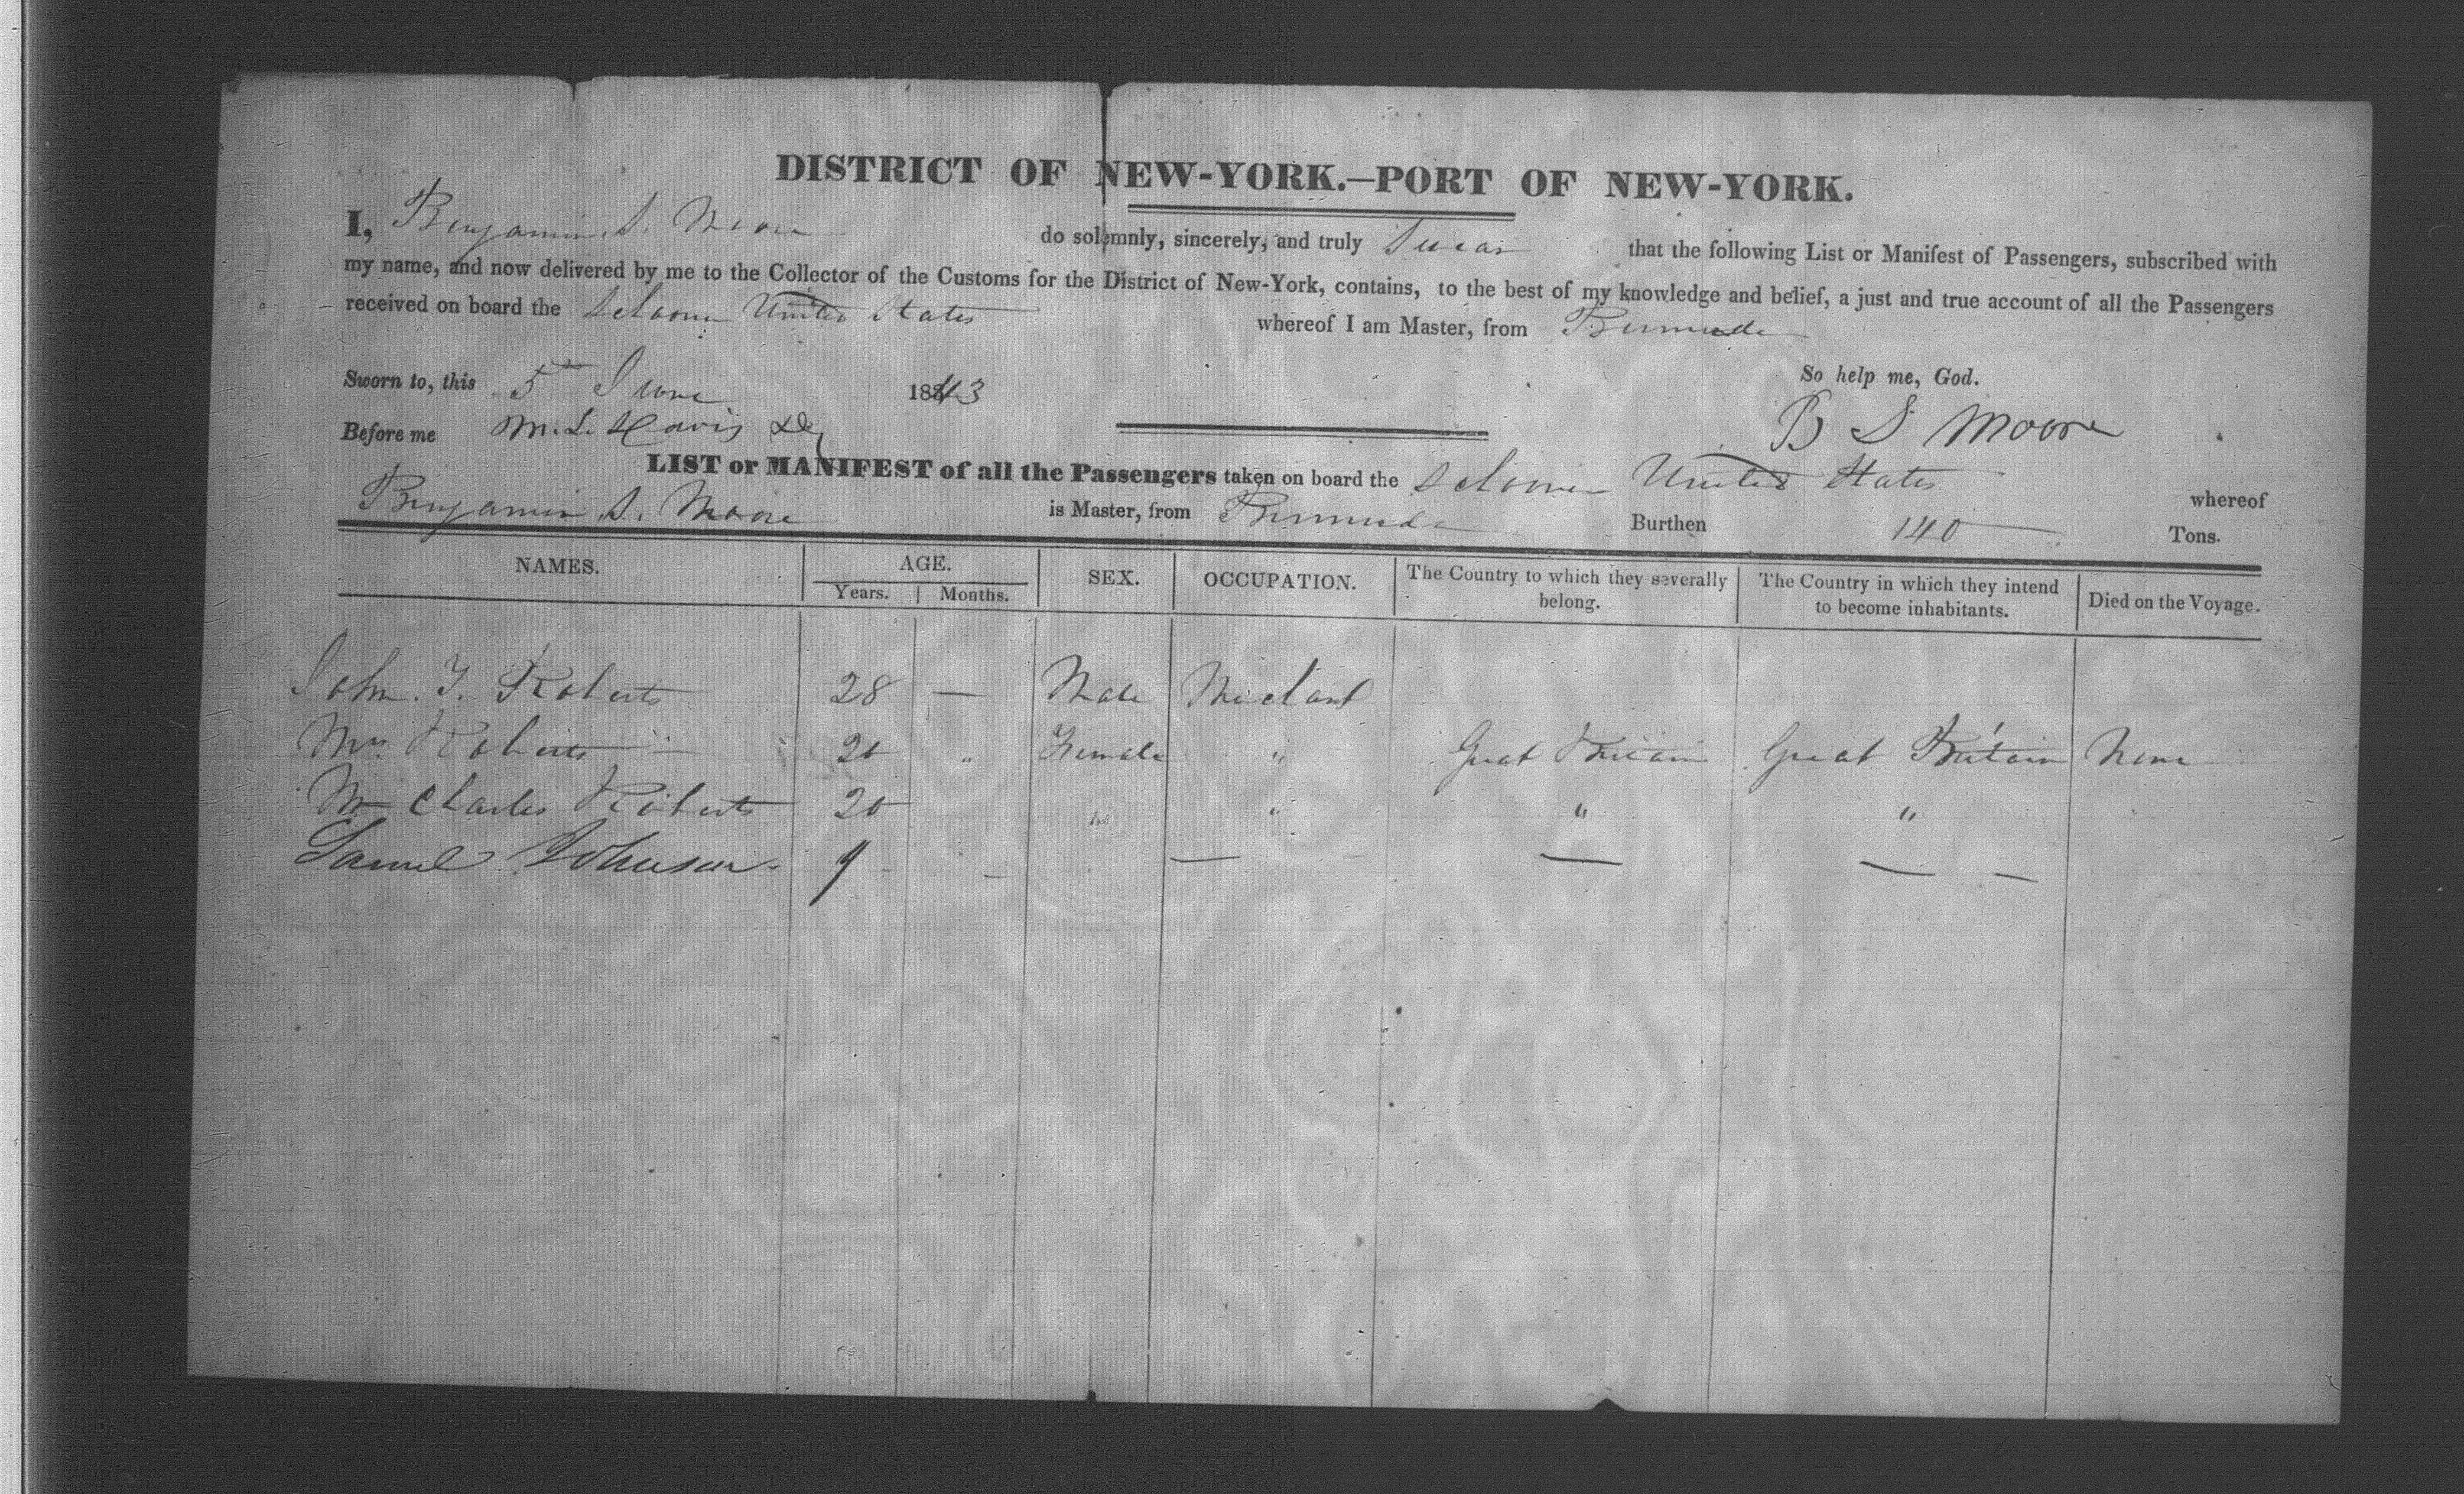 DISTRICT OF NEW-YORK.—PORT OF NEW-YORK.
I, Benjamin S. Moore do solemnly, sincerely, and truly Swear that the following List or Manifest of Passengers, subscribed with
my name, and now delivered by me to the Collector of the Customs for the District of New-York, contains, to the best of my knowledge and belief, a just and true account of all the Passengers
received on board the Schooner United States whereof I am Master, from Bermuda
So help me, God.
Sworn to, this 5th June 1843
B S Moore
Before me M. L. Davis
LIST or MANIFEST of all the Passengers taken on board the Schooner United States whereof
Benjamin S. Moore is Master, from Bermuda Burthen 140 Tons.
NAMES. AGE. SEX. OCCUPATION. The Country to which they severally belong. The Country in which they intend to become inhabitants. Died on the Voyage.
Years. Months.
John. T. Roberts 28 — Male Merchant
Mrs Roberts 20 " Female " Great Britain Great Britain None
Charles Roberts 20 " " "
Samuel Johnson — — — — —